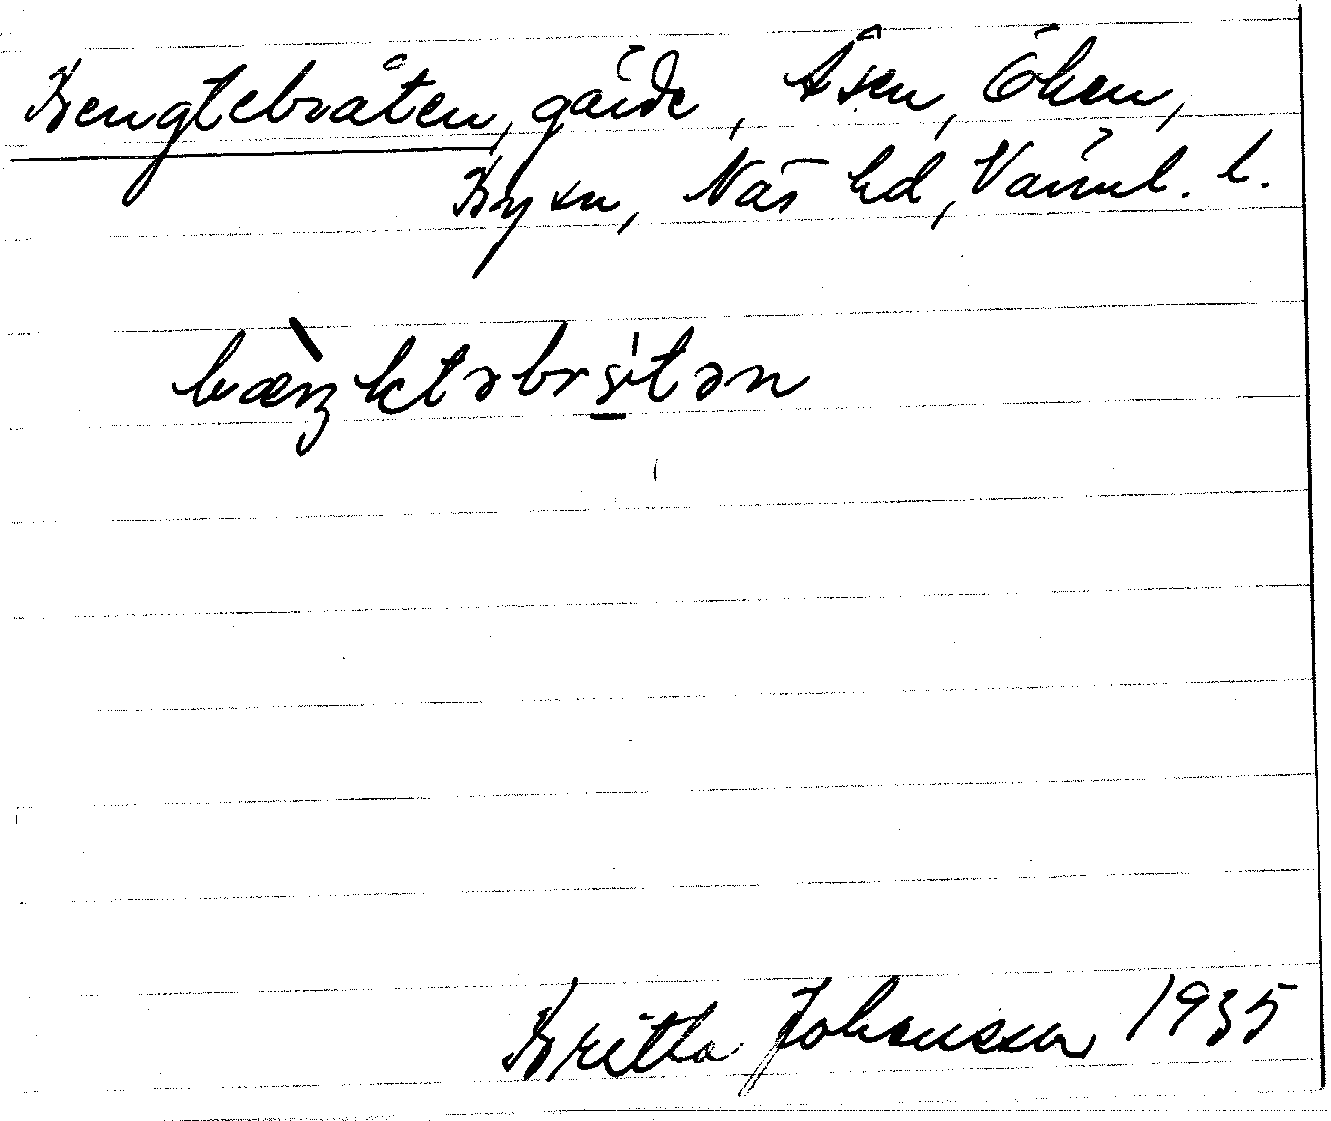 Bengtebråten, gärde, Åsen, Öken,
By sn, Näs hd, Värml. l.
bæ̀ŋktəbråtən
Britta Johansson 1935